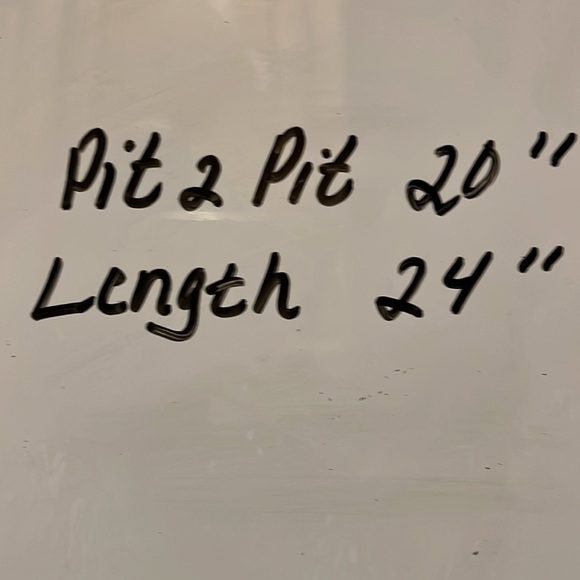 Pit 2 Pit 20"
Length 24"